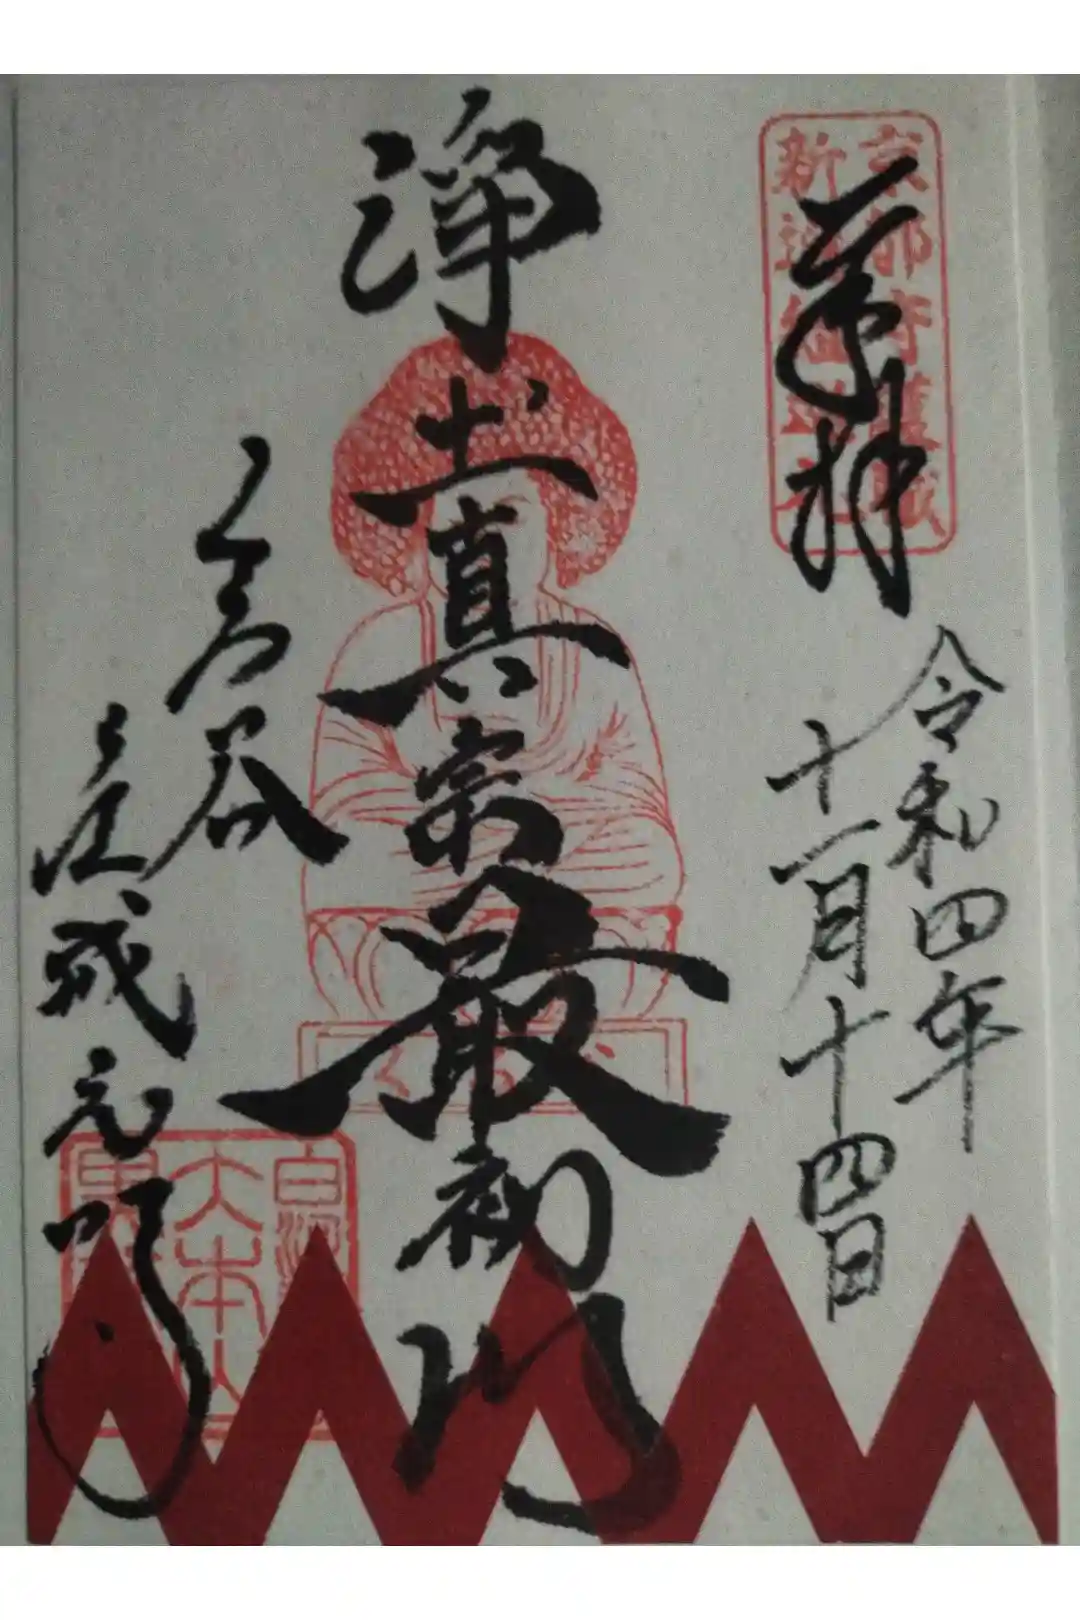 京都守護職
新選組
奉拝
令和四年
十一月十四日
浄土真宗最初門
くろ谷
金戒光明寺
大本山